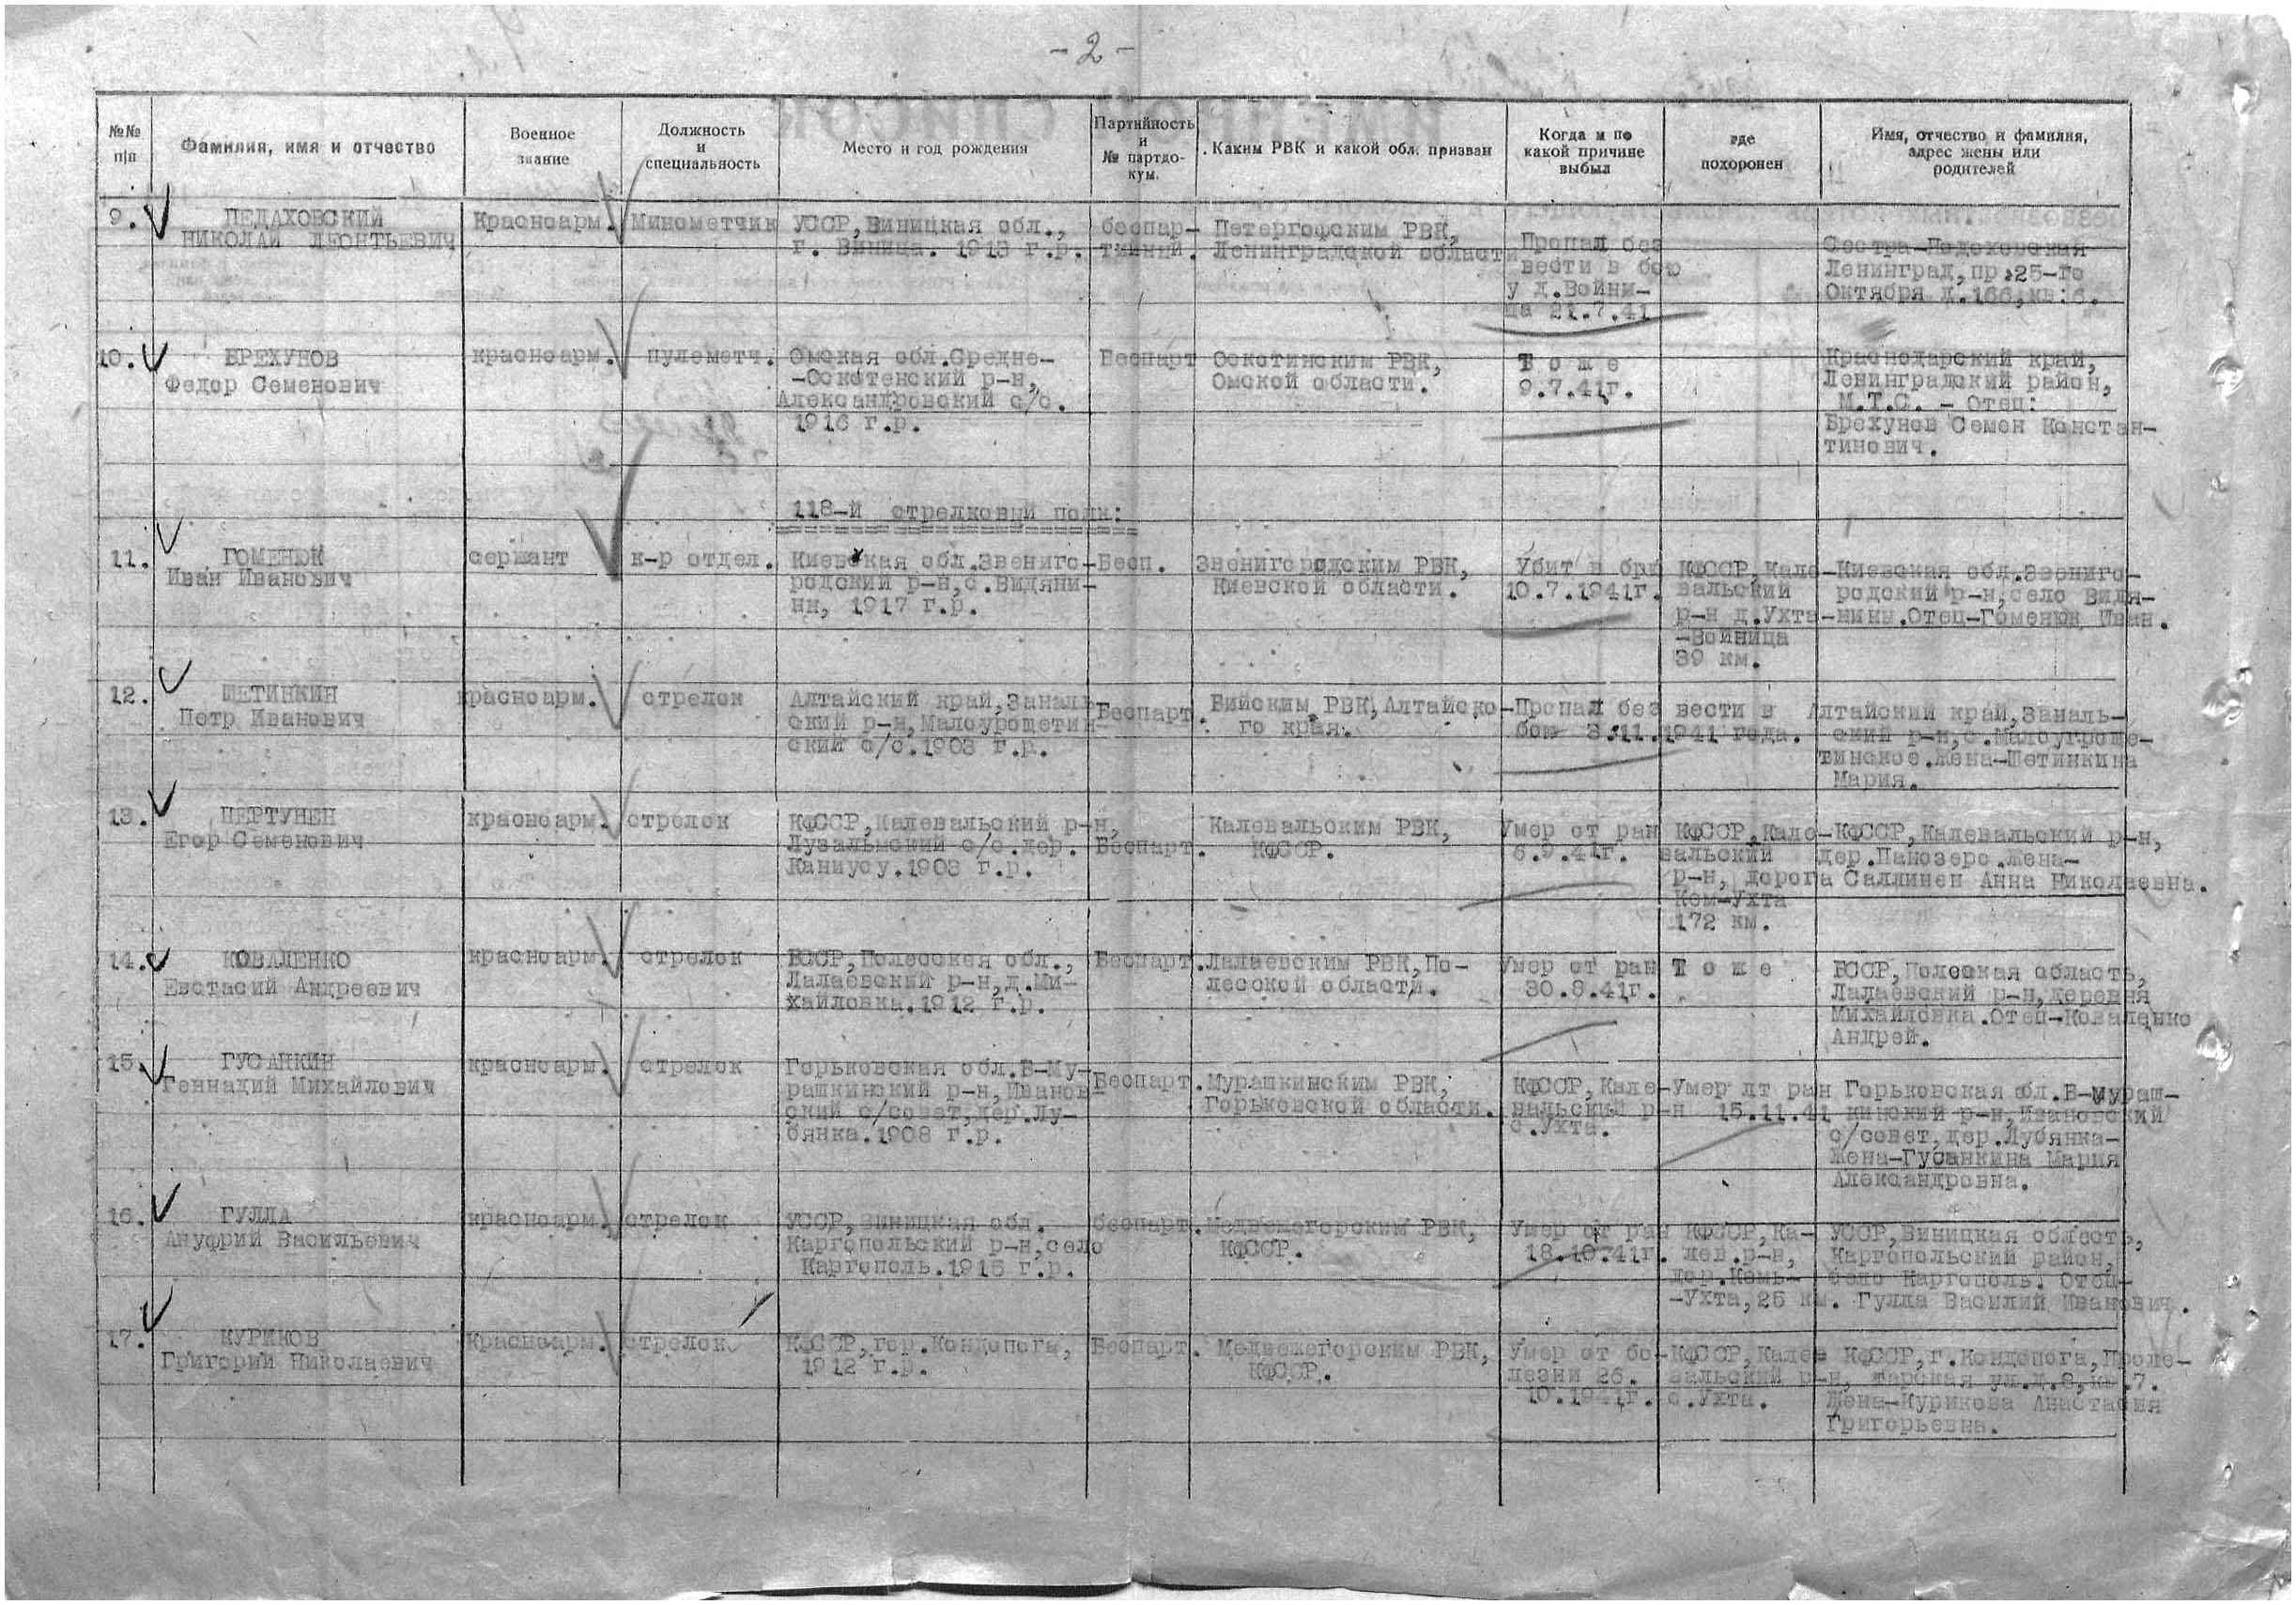 - 2 -
№№ п|п
Фамилия, имя и отчество
Военное звание
Должность и специальность
Место и год рождения
Партийность и № партдо-кум.
Каким РВК и какой обл. призван
Когда и по какой причине выбыл
где похоронен
Имя, отчество и фамилия, адрес жены или родителей
9.
ПЕДАХОВСКИЙ
НИКОЛАЙ ЛЕОНТЬЕВИЧ
Красноарм.
Минометчик
УССР, Виницкая обл.,
г. Виница. 1913 г.р.
беспар-
тийный.
Петергофским РВК,
Ленинградской области
Пропал без
вести в бою
у д.Войни-
ца 21.7.41
Сестра-Педоховская
Ленинград, пр.25-го
Октября д.166, кв.6.
10.
БРЕХУНОВ
Федор Семенович
красноарм.
пулеметч.
Омская обл.Средне-
-Оскотенский р-н,
Александровский с/с.
1916 г.р.
Беспарт
Оскотинским РВК,
Омской области.
Т о ж е
9.7.41г.
Краснодарский край,
Ленинградский район,
М.Т.С. - Отец:
Брехунов Семен Констан-
тинович.
118-й стрелковый полк:
11.
ГОМЕНЮК
Иван Иванович
сержант
к-р отдел.
Киевская обл.Звениго-
родский р-н,с.Видяни-
ни, 1917 г.р.
Бесп.
Звенигородским РВК,
Киевской области.
Убит в бою
10.7.1941г.
КФССР, Кале-
вальский
р-н д.Ухта-
-Войница
39 км.
Киевская обл.Звениго-
родский р-н, село Видя-
нины.Отец-Гоменюк Иван.
12.
ШЕТИНКИН
Петр Иванович
красноарм.
стрелок
Алтайский край, Заналь-
ский р-н, Малоурощетин-
ский с/с.1903 г.р.
Беспарт.
Бийским РВК, Алтайско-
го края.
Пропал без вести в
бою 3.11.1941 года.
Алтайский край, Заналь-
ский р-н, с.Малоугроще-
тинское.Жена-Шетинкина
Мария.
13.
ПЕРТУНЕН
Егор Семенович
красноарм.
стрелок
КФССР, Калевальский р-н,
Лувальмский с/с.дер.
Каниусу.1903 г.р.
Беспарт.
Калевальским РВК,
КФССР.
Умер от ран
6.9.41г.
КФССР, Кале-
вальский
р-н, дорога
Кем-Ухта
172 км.
КФССР, Калевальский р-н,
дер.Панозеро.жена-
Саллинен Анна Николаевна.
14.
КОВАЛЕНКО
Евстасий Андреевич
красноарм.
стрелок
БССР, Полесская обл.,
Лапаевский р-н,д.Ми-
хайловка.1912 г.р.
Беспарт.
Лапаевским РВК, По-
лесской области.
Умер от ран
30.8.41г.
Т о ж е
БССР, Полеская область,
Лапаевский р-н, деревня
Михайловка.Отец-Коваленко
Андрей.
15.
ГУСАНКИН
Геннадий Михайлович
красноарм.
стрелок
Горьковская обл.Б-Му-
рашкинский р-н, Иванов-
ский с/совет, дер.Лу-
бянка.1908 г.р.
Беспарт.
Мурашкинским РВК,
Горьковской области.
КФССР, Кале-
вальский р-н
с.Ухта.
Умер лт ран
15.11.41
Горьковская обл.Б-Мураш-
кинский р-н, Ивановский
с/совет, дер.Лубянка-
Жена-Гусанкина Мария
Александровна.
16.
ГУЛЛА
Ануфрий Васильевич
красноарм.
стрелок
УССР, Виницкая обл.
Каргопольский р-н, село
Каргополь.1915 г.р.
беспарт.
Медвежегорским РВК,
КФССР.
Умер от ран
18.10.41г.
КФССР, Ка-
лев.р-н,
дор.Кемь-
-Ухта, 25 км.
УССР, Виницкая область,
Каргопольский район,
село Каргополь. Отец-
Гулла Василий Иванович.
17.
КУРИКОВ
Григорий Николаевич
Красноарм.
стрелок
КФССР, гор.Кондопога,
1912 г.р.
Беспарт.
Медвежегорским РВК,
КФССР.
Умер от бо-
лезни 26.
10.1941г.
КФССР, Калев
вальский р-н,
с.Ухта.
КФССР, г.Кондопога, Проле-
тарская ул.д.8, кв.7.
Жена-Курикова Анастасия
Григорьевна.